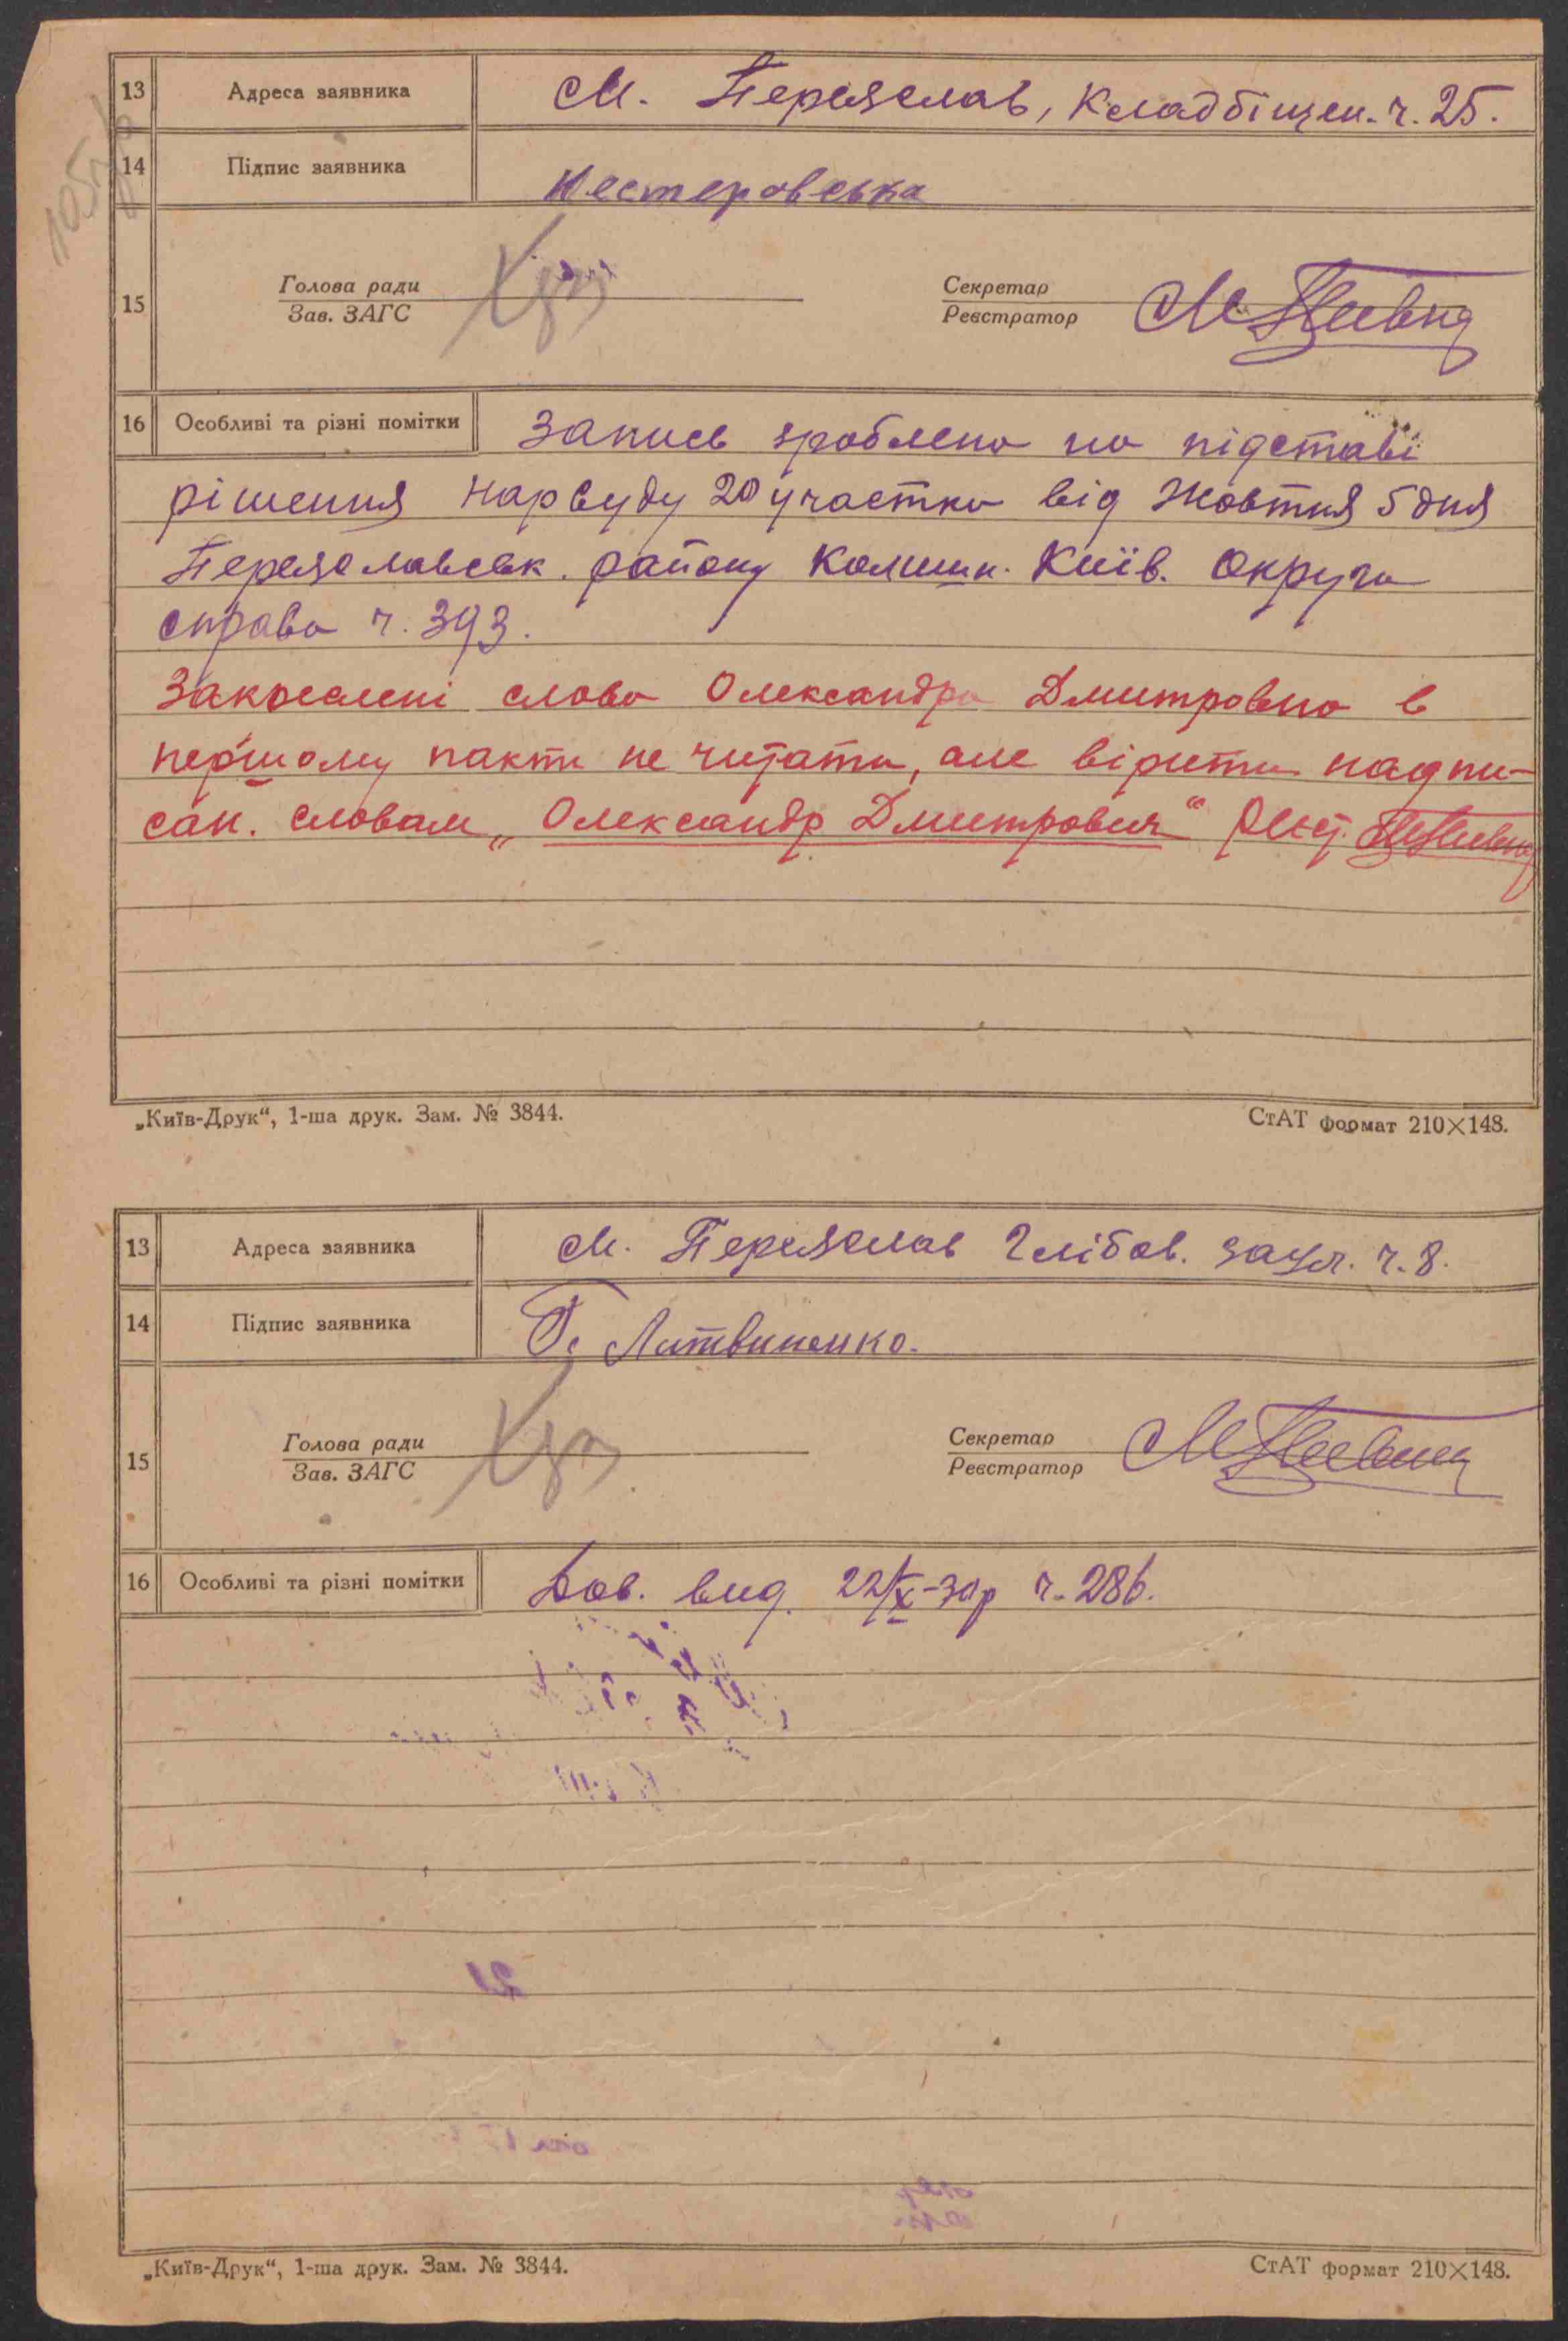 13 Адреса заявника м. Переяслав, Кладбіщен. ч. 25.
14 Підпис заявника Нестеровська
Голова ради Секретар
15
Зав. ЗАГС Реєстратор
16 Особливі та різні помітки Запись зроблено на підставі
рішення Нарсуду 20 участка від Жовтня 5 дня
Переяславськ. району Колишн. Київ. Округи
справа ч. 393.
Закреслені слова Олександра Дмитровна в
першому пакти не читати, але вірити надпи-
сан. словам „Олександр Дмитрович“ Реєт.
„Київ-Друк“, 1-ша друк. Зам. № 3844. СтАТ формат 210×148.
13 Адреса заявника м. Переяслав Глібов. заул. ч. 8.
14 Підпис заявника Г. Литвиненко.
Голова ради Секретар
15
Зав. ЗАГС Реєстратор
16 Особливі та різні помітки Дов. вид. 22/X-30р ч. 286.
„Київ-Друк“, 1-ша друк. Зам. № 3844. СтАТ формат 210×148.